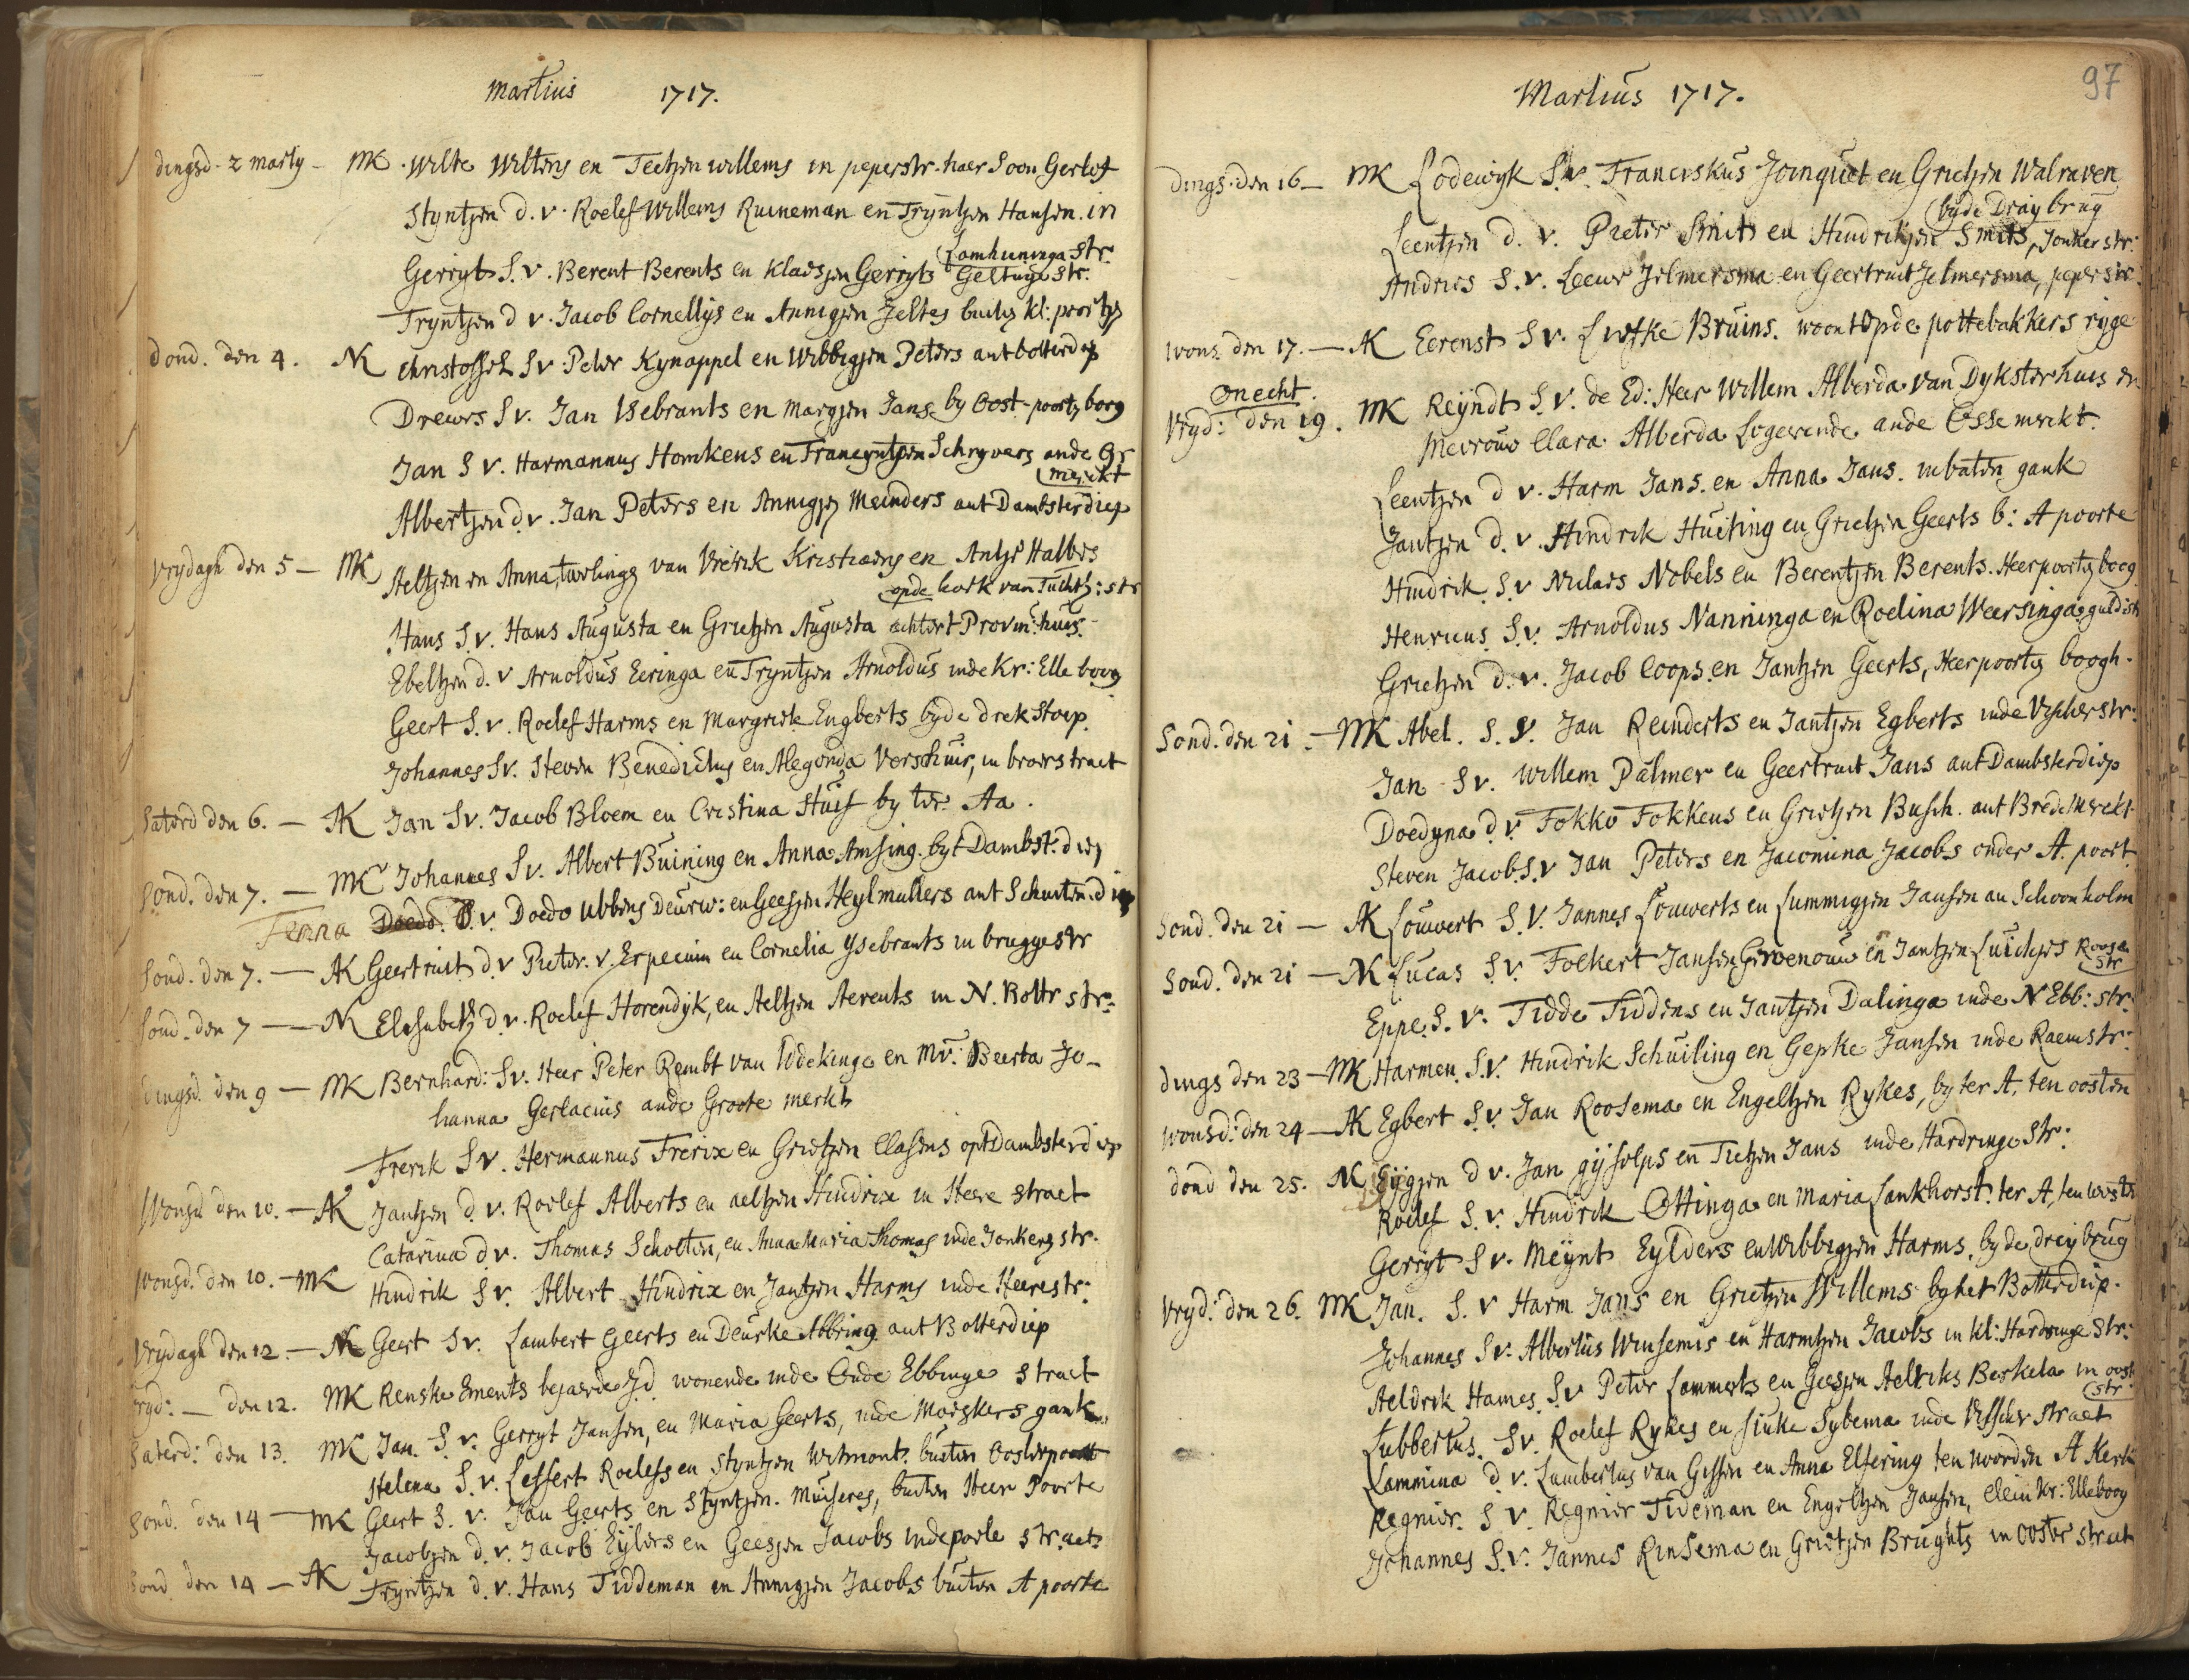 Martius 1717.
dingsd. 2 marty - MK. Wilte Wiltens en Teetjen willems in peperstr. haer Soon Gerlof
Styntjen d. v. Roelef Willems Ruineman en Tryntjen Hansen. in
Lamhuninga Str.
Gerryt S. v. Berent Berents en Klaesjen Gerryts Geltinge Str.
Tryntjen d v. Jacob Cornellys en Annigjen Jeltes buiten Kl: poortjen
dond. den 4. NK Christoffel Sv Peter Kynappel en Wibbigjen Peters ant botterdiep
Drewes Sv. Jan Isebrants en Margjen Jans by Oost-poorten boog
Jan S v. Harmannus Homkens en Francyntjen Schryvers ande Gr
merkt
Albertjen d. v. Jan Peters en Annigjen Meinders ant Dambsterdiep
Vrydagh den 5 - MK Aeltjen en Anna, twelinge van Vrerik Kristiaens en Antje Halbes
opde hoek van Tuchth: str
Hans S. v. Hans Augusta en Grietjen Augusta achtert Provin: huis.
Ebeltjen d. v Arnoldus Eeringa en Tryntjen Arnoldus inde Kr: Elle boog
Geert S. v. Roelef Harms en Margriete Engberts byde drek Stoep.
Johannes Sv. Steven Benedictus en Alegonda Verschuir, in broerstraet
Saterd den 6. - AK Jan Sv. Jacob Bloem en Cristina Stuif by ter Aa.
Sond. den 7. - MK Johannes Sv. Albert Buining en Anna Amsing. byt Dambst. diep
Fenna Doedo D. v. Doedo Ubbens Deurw: en Geesjen Heylmullers ant Schuiten diep
Sond. den 7. - AK Geertruit d. v Pieter. v. Erpecum en Cornelia Ysebrants in bruggestr
Sond. den 7 - NK Elisabeth d. v. Roelef Horendyk, en Aeltjen Aerents in N. Bottr str.
dingsd. den 9 - MK Bernhard: Sv. Heer Peter Rembt van Iddekinge en Mv: Beerta Jo-
hanna Gerlacius ande Groote merkt
Frerik Sv. Hermannus Frerix en Grietjen Clasens opt Dambsterdiep
Wonsd den 10. - AK Jantjen d. v. Roelef Alberts en aeltjen Hindrix in Heere straet
Catarina d v. Thomas Scholten, en Anna Maria Thomas inde Jonkers str.
Wonsd. den 10. - MK Hindrik Sv. Albert Hindrix en Jantjen Harms inde Heerestr:
Vrydagh den 12. - NK Geert Sv. Lambert Geerts en Deurke Abbring ant Botterdiep
Vryd: - den 12. MK Renske Ements bejaerde Jd wonende inde Oude Ebbinge straet
Saterd: den 13. MK Jan S v. Gerryt Jansen, en Maria Geerts, inde Moeskers gank.
Helena S. v. Leffert Roelefs en Styntjen Witmont. buiten Oosterpoort
Sond. den 14 - MK Geert S. v. Jan Geerts en Styntjen. Muiseres, buiten Heer Poorte
Jacobjen d. v. Jacob Eylers en Geesjen Jacobs inde poele straet
Sond den 14 - AK Tryntjen d. v. Hans Tiddeman en Annigjen Jacobs buiten A poorte
97
Martius 1717.
dings. den 16 - MK Lodewyk Sv. Franciskus Joinquet en Grietjen Walraven
byde Draybrug
Leentjen d. v. Pieter Smits en Hindrikjen Smits, Jonker str:
Andries S. v. Leeuw Jelmersma en Geertruit Jelmersma, peperstr.
Wons. den 17. - AK Eerenst Sv. Liefke Bruins. woont opde pottebakkers ryge
onecht.
Vryd: den 19. MK Reyndt S. v. de Ed: Heer Willem Alberda van Dyksterhuis en
Mevrouw Clara Alberda Logerende ande Osse merkt.
Leentjen d v. Harm Jans. en Anna Jans. in baten gank
Jantjen d. v. Hindrik Hueting en Grietjen Geerts b: A poorte
Hindrik. S.v Niclaes Nobels en Berentjen Berents. Heerpoorten boog
Henricus S.v. Arnoldus Nanninga en Roelina Weersinga guldestr
Grietjen d. v. Jacob Coops en Jantjen Geerts, Heerpoorten boogh.
Sond. den 21. - MK Abel. S. v. Jan Reinderts en Jantjen Egberts inde Vischerstr:
Jan Sv. Willem Palmer en Geertruit Jans ant Dambsterdiep
Doedyna d v Fokko Fokkens en Grietjen Busch. ant Brede Merckt
Steven Jacobs. S.v Jan Peters en Jacomina Jacobs onder A. poort
Sond. den 21 - AK Louwert S.v. Jannes Louwerts en Lummigjen Jansen an Schoonholm
Sond. den 21 - NK Lucas S.v. Folkert Jansen Groenouw en Jantjen Luichjes Roose
str
Eppe. S. v. Tidde Tiddens en Jantjen Dalinga inde N Ebb: str:
dings den 23 - MK Harmen S.v. Hindrik Schuiling en Gepke Jansen inde Raemstr:
wonsd: den 24 - AK Egbert S.v. Jan Roosema en Engeltjen Rykes, by ter A, ten oosten
dond den 25. NK Eijgjen d v. Jan gijsolps en Tietjen Jans inde Hardringe Str:
Roelef S. v. Hindrik Ottinga en Maria Lankhorst. ter A, ten westen
Gerryt Sv. Meynt Eylders en Wibbigjen Harms, byde dreybrug
Vryd: den 26. MK Jan. S. v Harm Jans en Grietjen Willems by het Botterdiep.
Johannes Sv. Albertus Winsemis en Harmtjen Jacobs in kl: Hardringe Str:
Aeldrik Hames S.v Peter Lammerts en Geesjen Aelriks Berkela in oost
str.
Lubbertus. Sv. Roelef Rykes en Siuke Sybema inde Visscher straet
Lammina d v. Lambertus van Gissen en Anna Elfering ten noorden A Kerk
Regnier. S v. Regnier Tideman en Engeltjen Jansen, clein kr: Elleboog
Johannes S.v. Jannes Rinsema en Grietjen Brughts in ooster straet